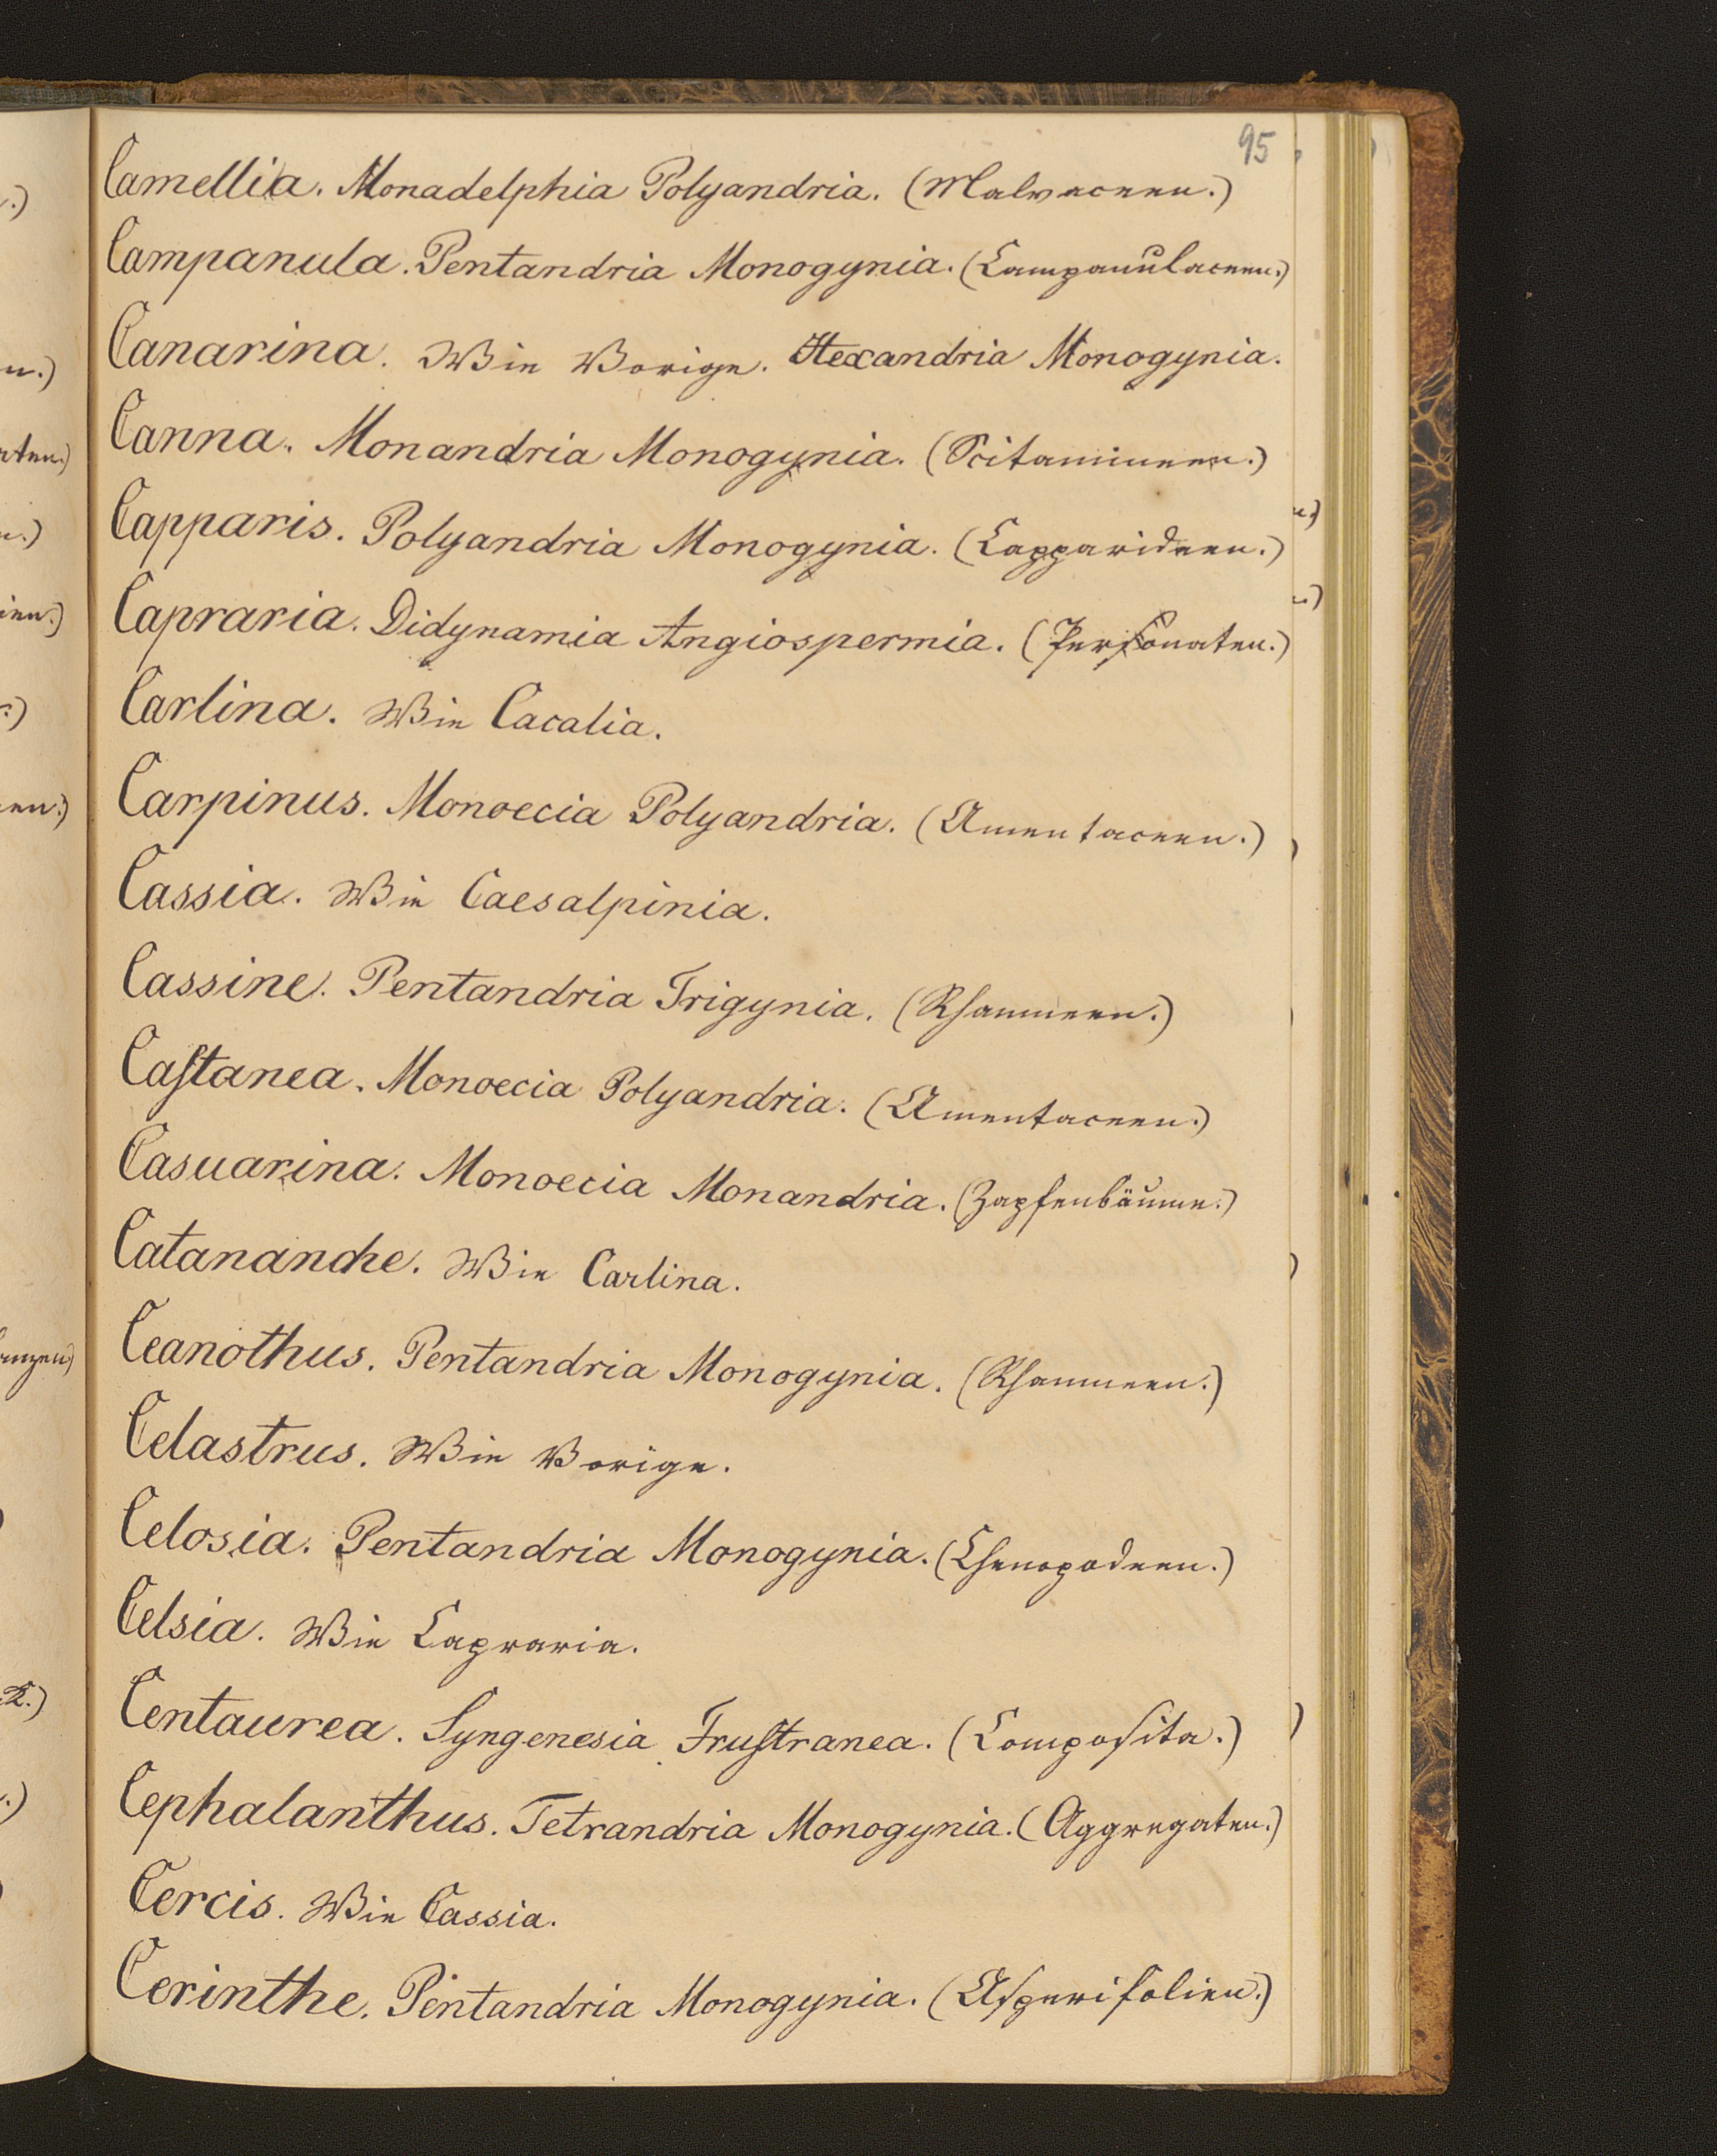 95
Camellia. Monadelphia Polyandria. (Malvaceen.)
Campanula. Pentandria Monogynia. (Campanulaceen.)
Canarina. Wie Vorige. Hexandria Monogynia.
Canna. Monandria Monogynia. (Scitamineen.)
Capparis. Polyandria Monogynia. (Capparideen.)
Capraria. Didynamia Angiospermia. (Personaten.)
Carlina. Wie Cacalia.
Carpinus. Monoecia Polyandria. (Amentaceen.)
Cassia. Wie Caesalpinia.
Cassine. Pentandria Trigynia. (Rhamneen.)
Caſtanea. Monoecia Polyandria. (Amentaceen.)
Casuarina. Monoecia Monandria. (Zapfenbäume.)
Catananche. Wie Carlina.
Ceanothus. Pentandria Monogynia. (Rhamneen.)
Celastrus. Wie Vorige.
Celosia. Pentandria Monogynia. (Chenopodeen.)
Celsia. Wie Capraria.
Centaurea. Syngenesia Fruſtranea. (Compoſita.)
Cephalanthus. Tetrandria Monogynia. (Aggregaten.)
Cercis. Wie Cassia.
Cerinthe. Pentandria Monogynia. (Aſperifolien.)